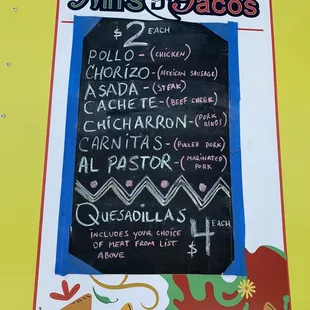 Tacos
$2 EACH
POLLO-(CHICKEN)
CHORIZO-(MEXICAN SAUSAGE)
ASADA-(STEAK)
CACHETE-(BEEF CHEEK)
CHICHARRON-(PORK RINDS)
CARNITAS-(PULLED PORK)
AL PASTOR-(MARINATED PORK)
QUESADILLAS
INCLUDES YOUR CHOICE
OF MEAT FROM LIST
ABOVE
$4 EACH